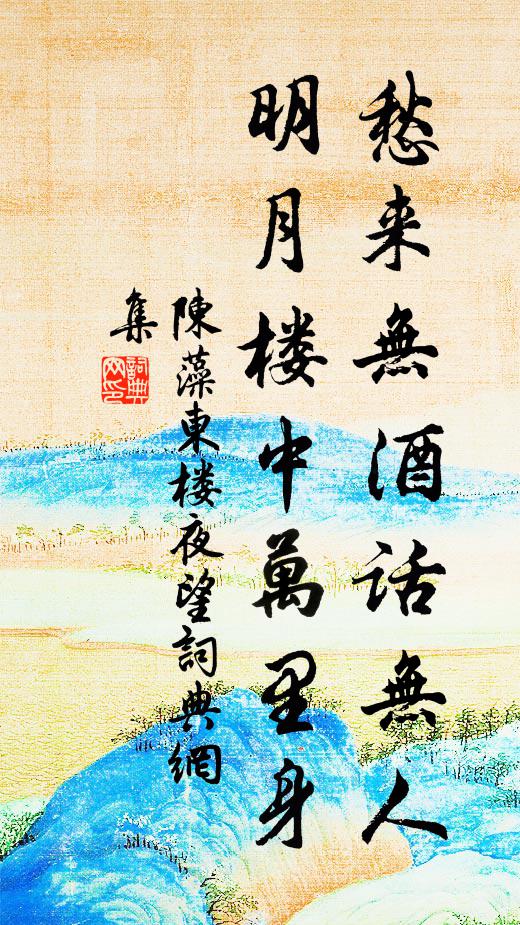 愁来無酒話無人
明月楼中萬里身
陳藻東楼夜望詞典網
集
詞典
网印